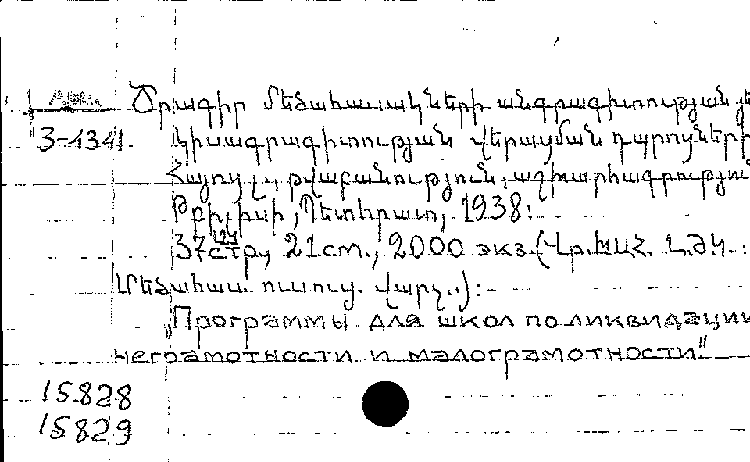 Ծրագիր մեծահասակների անգրագիտության և
3-4341. կիսագրագիտության վերացման դպրոցների
Հայոց լ., թվաբանություն, աշխարհագրություն
Թբիլիսի, Պետհրատ, 1938:
37 стр., 21 cm., 2000 экз. (Վր. ԽՍՀ. Լ.Ժ.Կ.
Մեծահաս. ուսուց. վարչ..):
„Программы для школ по ликвидации
неграмотности и малограмотности"
15828
15829